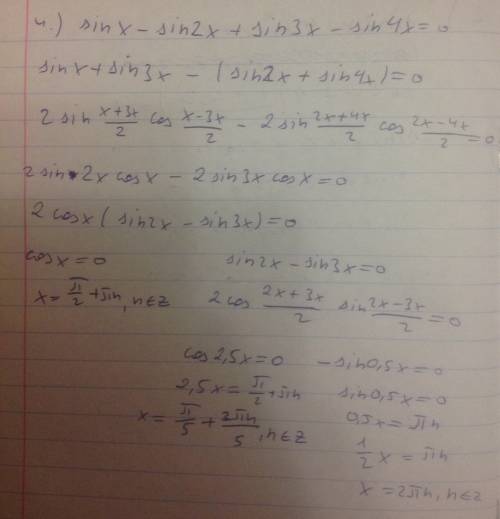 4.) sinx - sin2x + sin3x - sin4x = 0
sinx + sin3x - (sin2x + sin4x) = 0
2 sin (x+3x)/2 cos (x-3x)/2 - 2 sin (2x+4x)/2 cos (2x-4x)/2 = 0
2 sin 2x cosx - 2 sin3x cosx = 0
2 cosx (sin2x - sin3x) = 0
cosx = 0
x = π/2 + πn, n∈Z
sin2x - sin3x = 0
2 cos (2x+3x)/2 sin (2x-3x)/2 = 0
cos 2,5x = 0
2,5x = π/2 + πn
x = π/5 + 2πn/5, n∈Z
- sin0,5x = 0
sin0,5x = 0
0,5x = πn
1/2 x = πn
x = 2πn, n∈Z